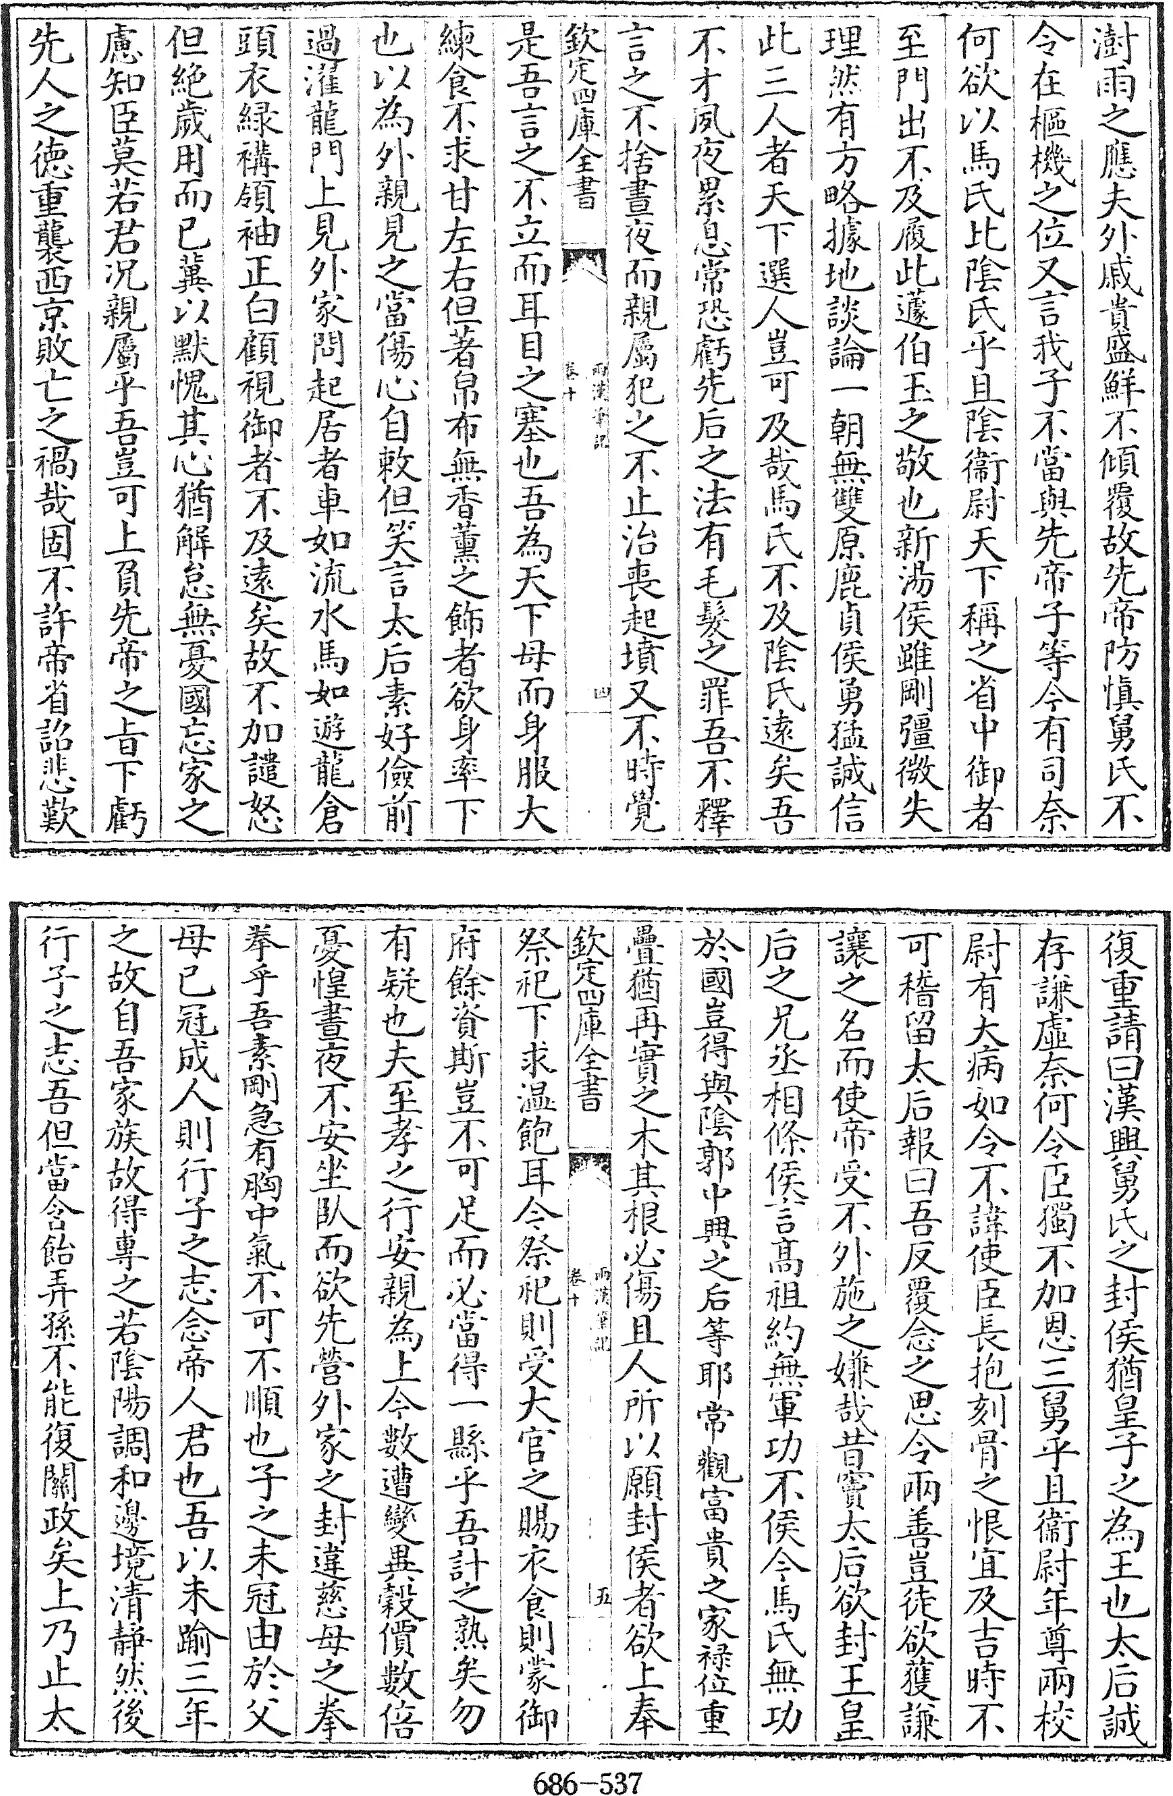 澍雨之應夫外戚貴盛鮮不傾覆故先帝防慎舅氏不
令在樞機之位又言我子不當與先帝子等今有司奈
何欲以馬氏比陰氏乎且陰衛尉天下稱之省中御者
至門出不及履此蘧伯玉之敬也新湯侯雖剛彊微失
理然有方略據地談論一朝無雙原鹿貞侯勇猛誠信
此三人者天下選人豈可及哉馬氏不及陰氏遠矣吾
不才夙夜累息常恐虧先后之法有毛髮之罪吾不釋
言之不捨晝夜而親屬犯之不止治喪起墳又不時覺
欽定四庫全書
兩漢筆記
卷十
四
是吾言之不立而耳目之塞也吾為天下母而身服大
練食不求甘左右但著帛布無香薰之飾者欲身率下
也以為外親見之當傷心自敕但笑言太后素好儉前
過濯龍門上見外家問起居者車如流水馬如遊龍倉
頭衣緑褠領袖正白顧視御者不及遠矣故不加譴怒
但絶歲用而已冀以默愧其心猶解怠無憂國忘家之
慮知臣莫若君況親屬乎吾豈可上負先帝之旨下虧
先人之德重襲西京敗亡之禍哉固不許帝省詔悲歎
復重請曰漢興舅氏之封侯猶皇子之為王也太后誠
存謙虛奈何令臣獨不加恩三舅乎且衛尉年尊兩校
尉有大病如令不諱使臣長抱刻骨之恨宜及吉時不
可稽留太后報曰吾反覆念之思令兩善豈徒欲獲謙
讓之名而使帝受不外施之嫌哉昔竇太后欲封王皇
后之兄丞相條侯言高祖約無軍功不侯今馬氏無功
於國豈得與陰郭中興之后等耶常觀富貴之家禄位重
疊猶再實之木其根必傷且人所以願封侯者欲上奉
欽定四庫全書
兩漢筆記
卷十
五
祭祀下求温飽耳今祭祀則受大官之賜衣食則蒙御
府餘資斯豈不可足而必當得一縣乎吾計之熟矣勿
有疑也夫至孝之行安親為上今數遭變異穀價數倍
憂惶晝夜不安坐臥而欲先營外家之封違慈母之拳
拳乎吾素剛急有胸中氣不可不順也子之未冠由於父
母已冠成人則行子之志念帝人君也吾以未踰三年
之故自吾家族故得專之若陰陽調和邊境清靜然後
行子之志吾但當含飴弄孫不能復關政矣上乃止太
686-537